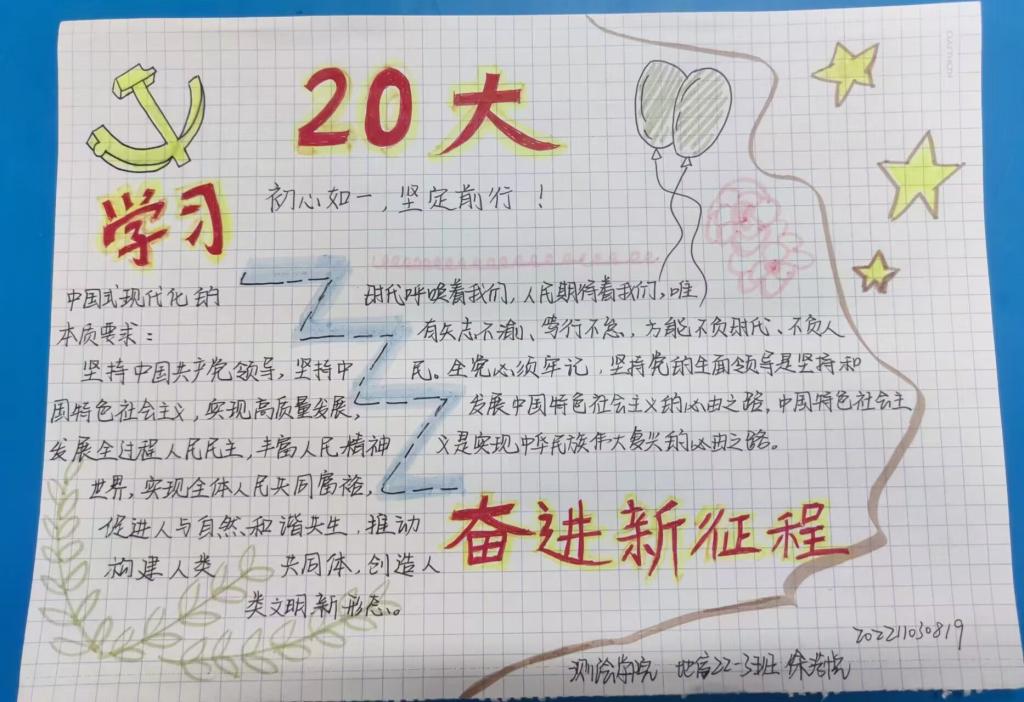 20大
学习
初心如一,坚定前行!
中国式现代化的
本质要求:
坚持中国共产党领导,坚持中
国特色社会主义,实现高质量发展,
发展全过程人民民主,丰富人民精神
世界,实现全体人民共同富裕,
促进人与自然和谐共生,推动
构建人类 共同体,创造人
类文明新形态。
时代呼唤着我们,人民期待着我们,唯
有矢志不渝、笃行不怠,方能不负时代、不负人
民。全党必须牢记,坚持党的全面领导是坚持和
发展中国特色社会主义的必由之路,中国特色社会主
义是实现中华民族伟大复兴的必由之路。
奋进新征程
202211030819
测绘学院 地信22-3班